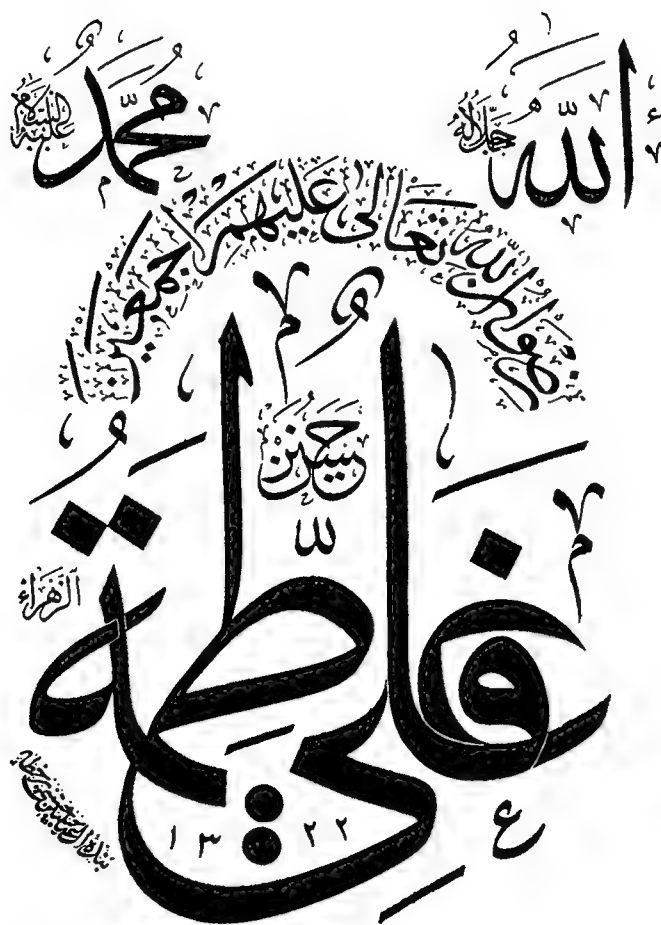 اللّٰه جل جلاله
محمد عليه السلام
رضوان الله تعالى عليهم اجمعين
فاطمة
الزهراء
علي
١٣٢٢